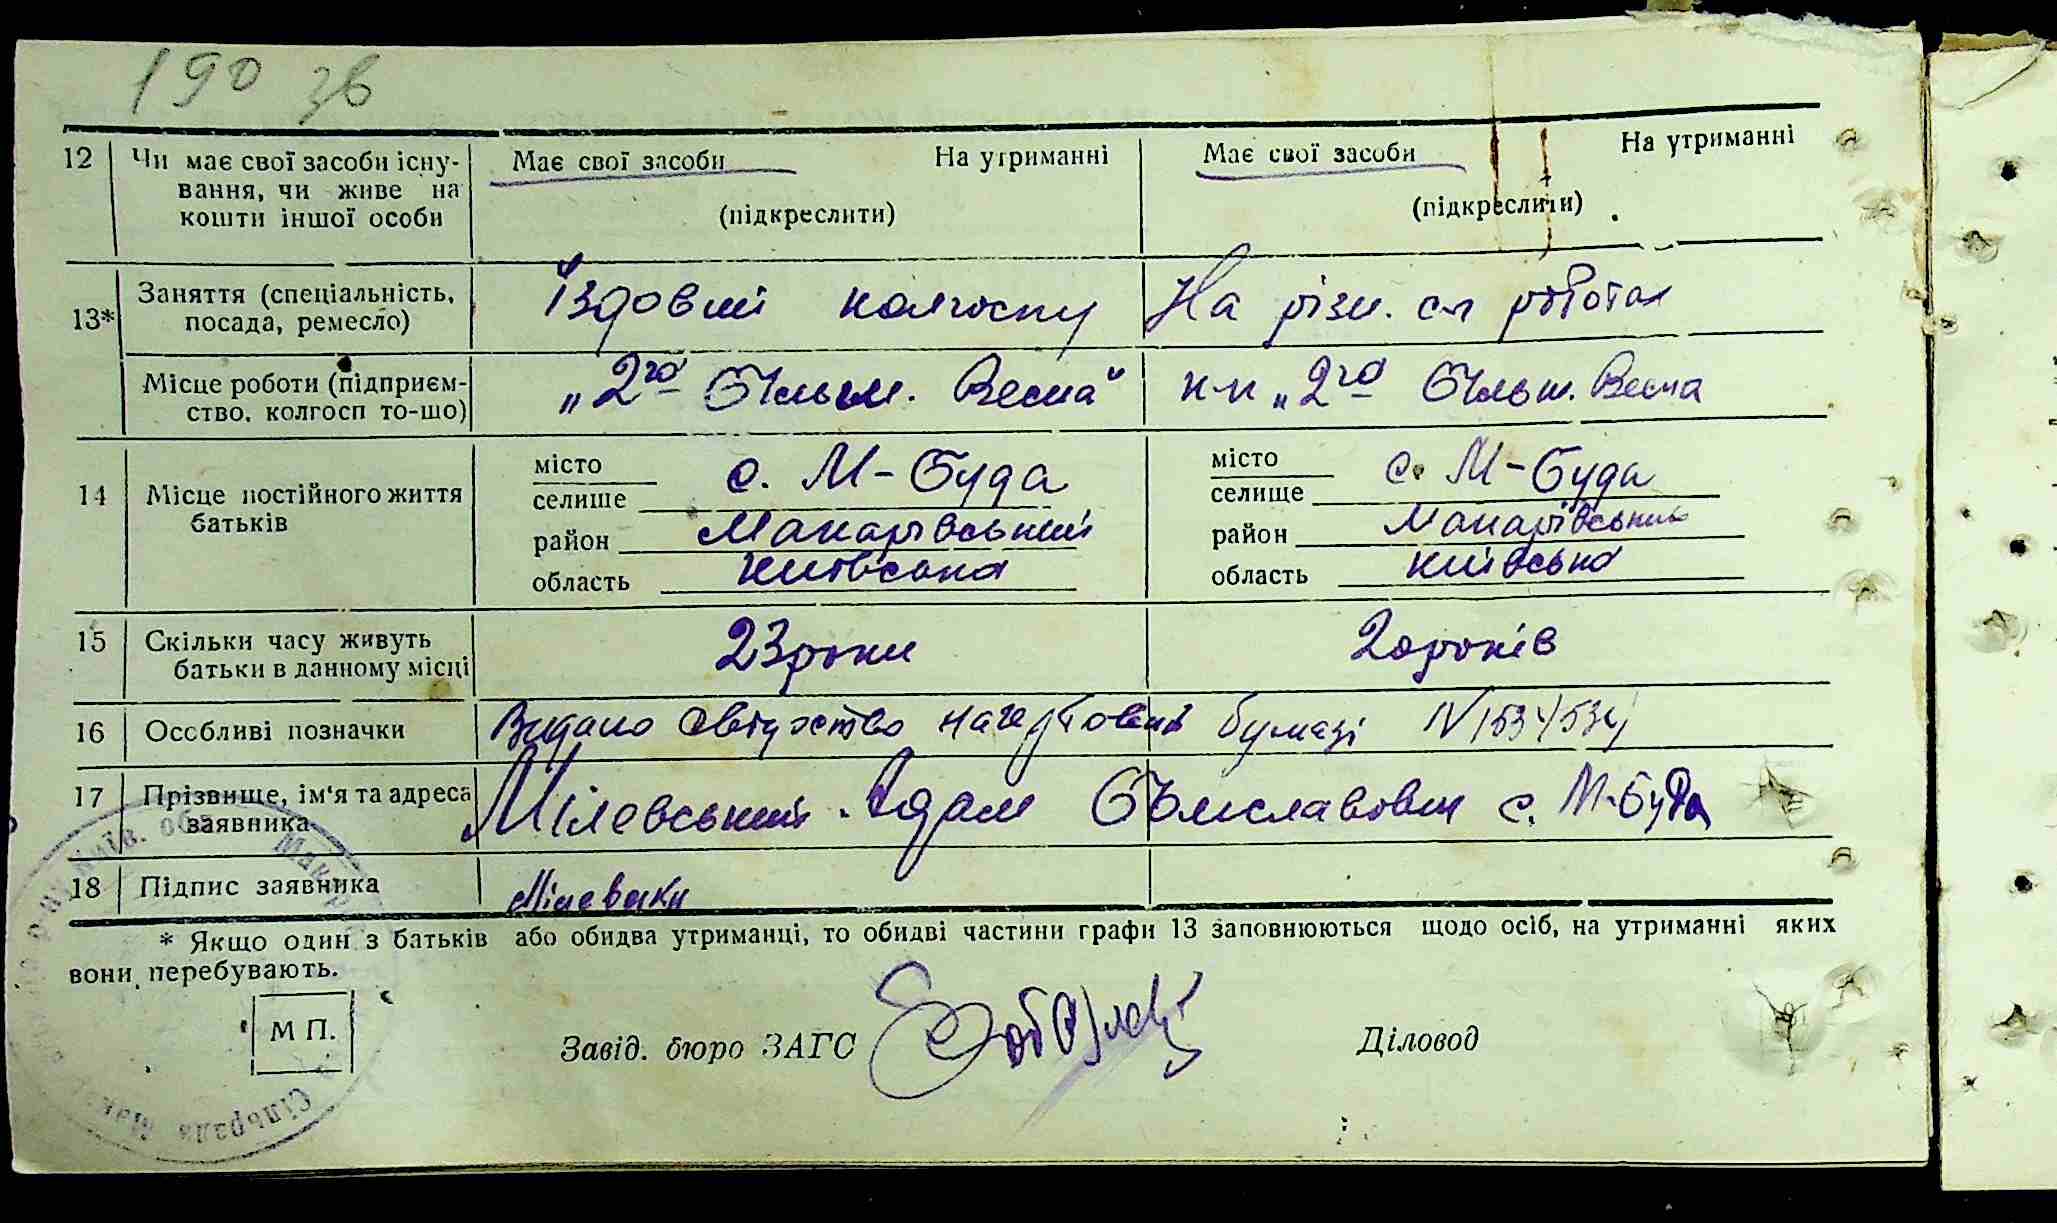 190 зв
12 Чи має свої засоби існу- Має свої засоби На утриманні Має свої засоби На утриманні
вання, чи живе на
кошти іншої особи (підкреслити) (підкреслити)
13* Заняття (спеціальність, Їздовий колгоспу На різн. с-г роботах
посада, ремесло)
Місце роботи (підприєм- „2го Більш. Весна" к-п „2го Більш. Весна
ство, колгосп то-що)
14 Місце постійного життя місто с. М-Буда місто с. М-Буда
батьків селище селище
район Макарівський район Макарівський
область Київська область Київська
15 Скільки часу живуть 23 роки 20 років
батьки в данному місці
16 Особливі позначки Видано свідоцтво на гербовій бумазі N
17 Прізвище, ім'я та адреса Мілевський Адам Болиславович с. М-Буда
заявника
18 Підпис заявника Мілевски
* Якщо один з батьків або обидва утриманці, то обидві частини графи 13 заповнюються щодо осіб, на утриманні яких
вони перебувають.
М П.
Завід. бюро ЗАГС Діловод